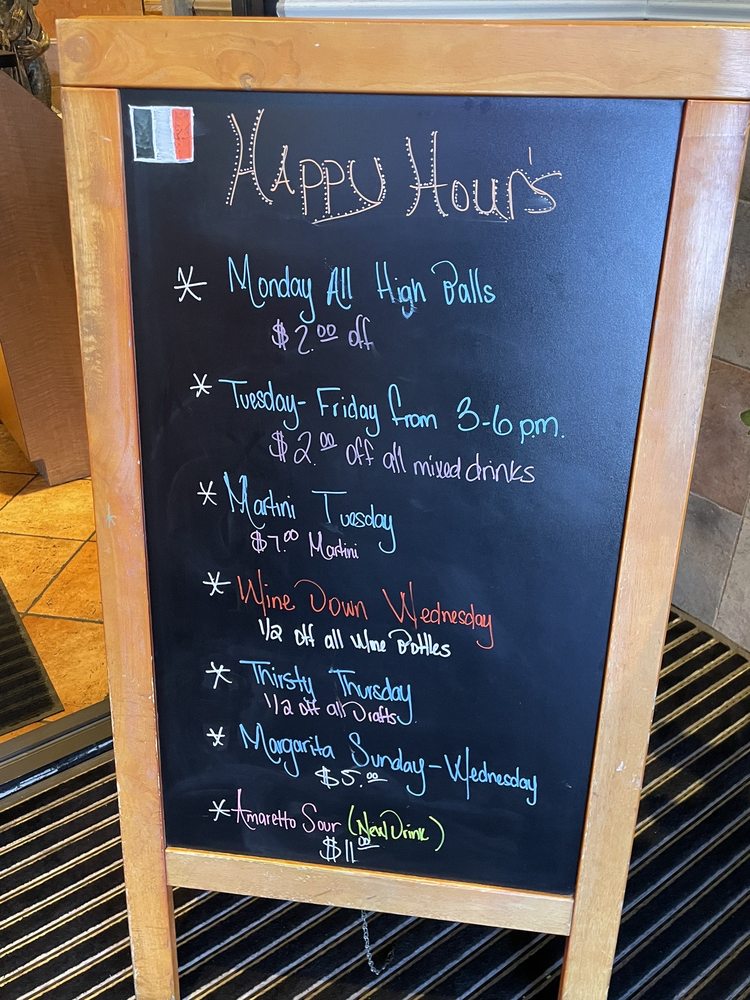 Happy Hour's
* Monday All High Balls
$2.00 off
* Tuesday-Friday from 3-6 p.m.
$2.00 off all mixed drinks
* Martini Tuesday
$7.00 Martini
* Wine Down Wednesday
1/2 off all Wine Bottles
* Thirsty Thursday
1/2 off all Drafts
* Margarita Sunday-Wednesday
$5.00
* Amaretto Sour (New Drink)
$11.00